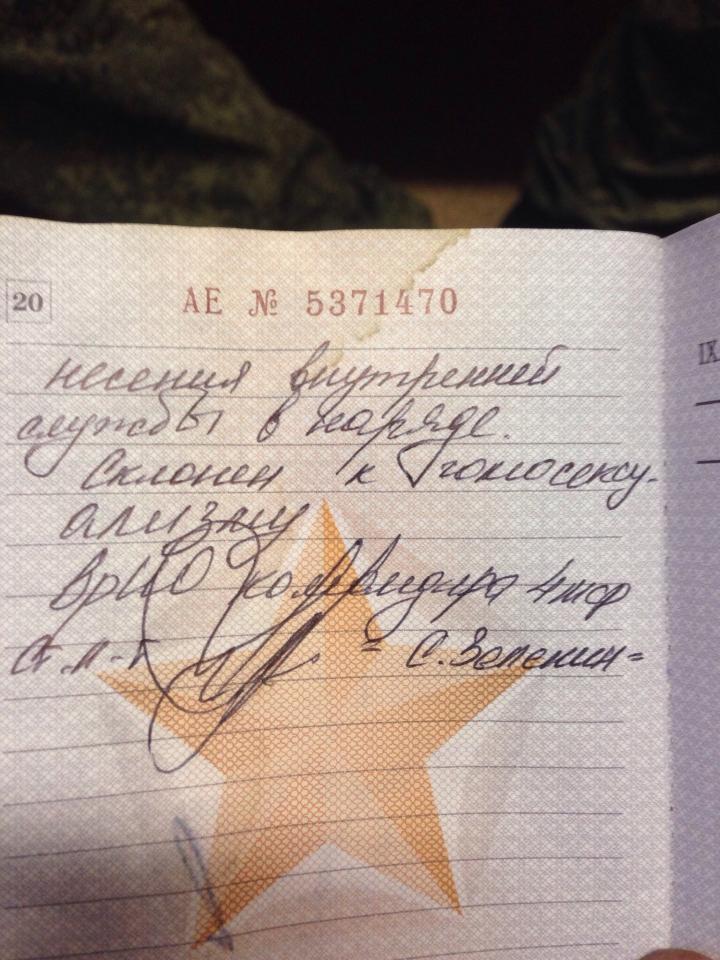 20
АЕ № 5371470
IX
несения внутренней
службы в наряде.
Склонен к гомосексу-
ализму
ВрИО командира 4
ст. л-т = С. Зеленин =